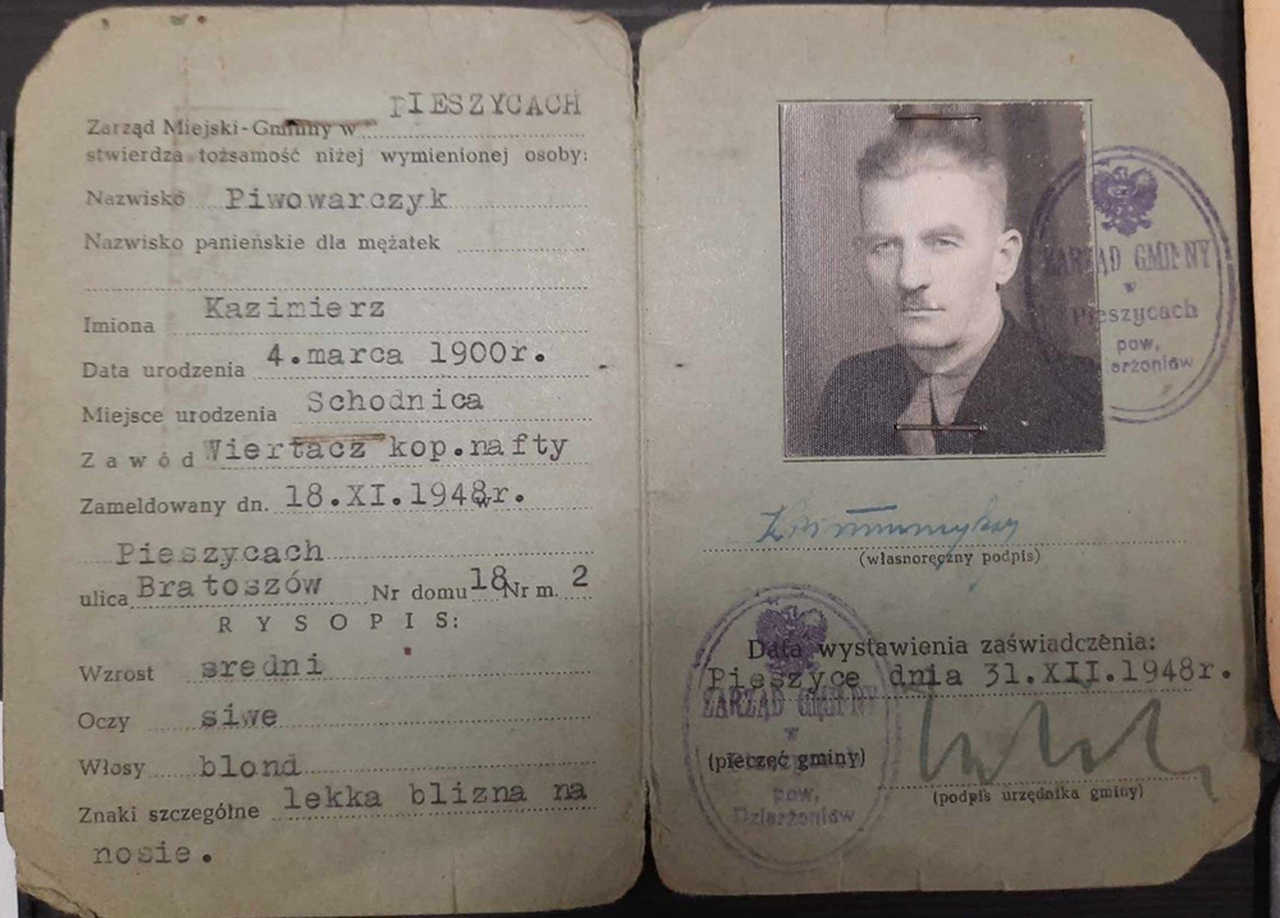 PIESZYCACH
Zarząd Miejski-Gminny w
stwierdza tożsamość niżej wymienionej osoby:
Nazwisko Piwowarczyk
Nazwisko panieńskie dla mężatek
Imiona Kazimierz
Data urodzenia 4.marca 1900r.
Miejsce urodzenia Schodnica
Zawód Wiertacz kop.nafty
Zameldowany dn. 18.XI.1948r. w
Pieszycach
ulica Bratoszów Nr domu 18 Nr m. 2
RYSOPIS:
Wzrost sredni
Oczy siwe
Włosy blond
Znaki szczególne lekka blizna na
nosie.
ZARZĄD GMINNY
w
Pieszycach
pow.
erżoniów
(własnoręczny podpis)
Data wystawienia zaświadczenia:
Pieszyce dnia 31.XII.1948r.
ZARZĄD GMINNY
w
(pieczęć gminy)
pow.
Dzierżoniów
(podpis urzędnika gminy)